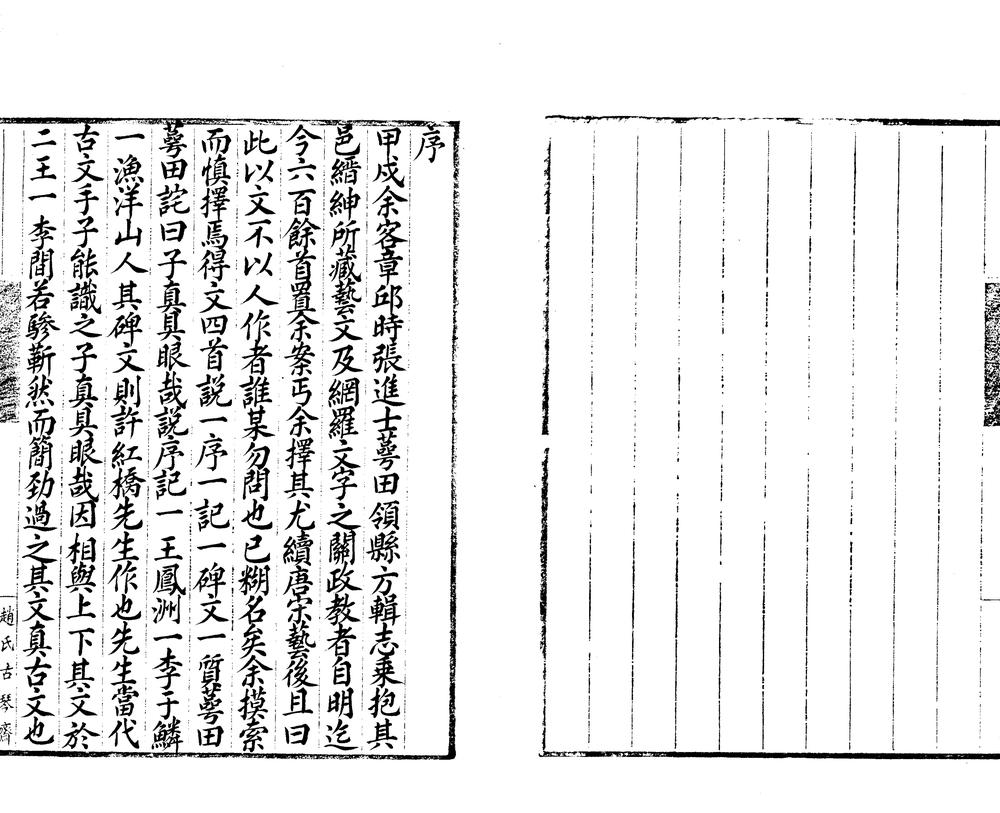 序
甲戍余客章邱時張進士蕚田領縣方輯志乗抱其
邑縉紳所藏藝文及網羅文字之關政教者自明迄
今六百餘首置余案丐余擇其尤續唐宋藝後且曰
此以文不以人作者誰某勿問也已糊名矣余摸索
而慎擇焉得文四首説一序一記一碑文一質蕚田
蕚田詫曰子真具眼哉説序記一王鳳洲一李于鱗
一漁洋山人其碑文則許紅橋先生作也先生當代
古文手子能識之子真具眼哉因相與上下其文於
二王一李間若驂靳然而簡勁過之其文真古文也
趙氏古琴齋